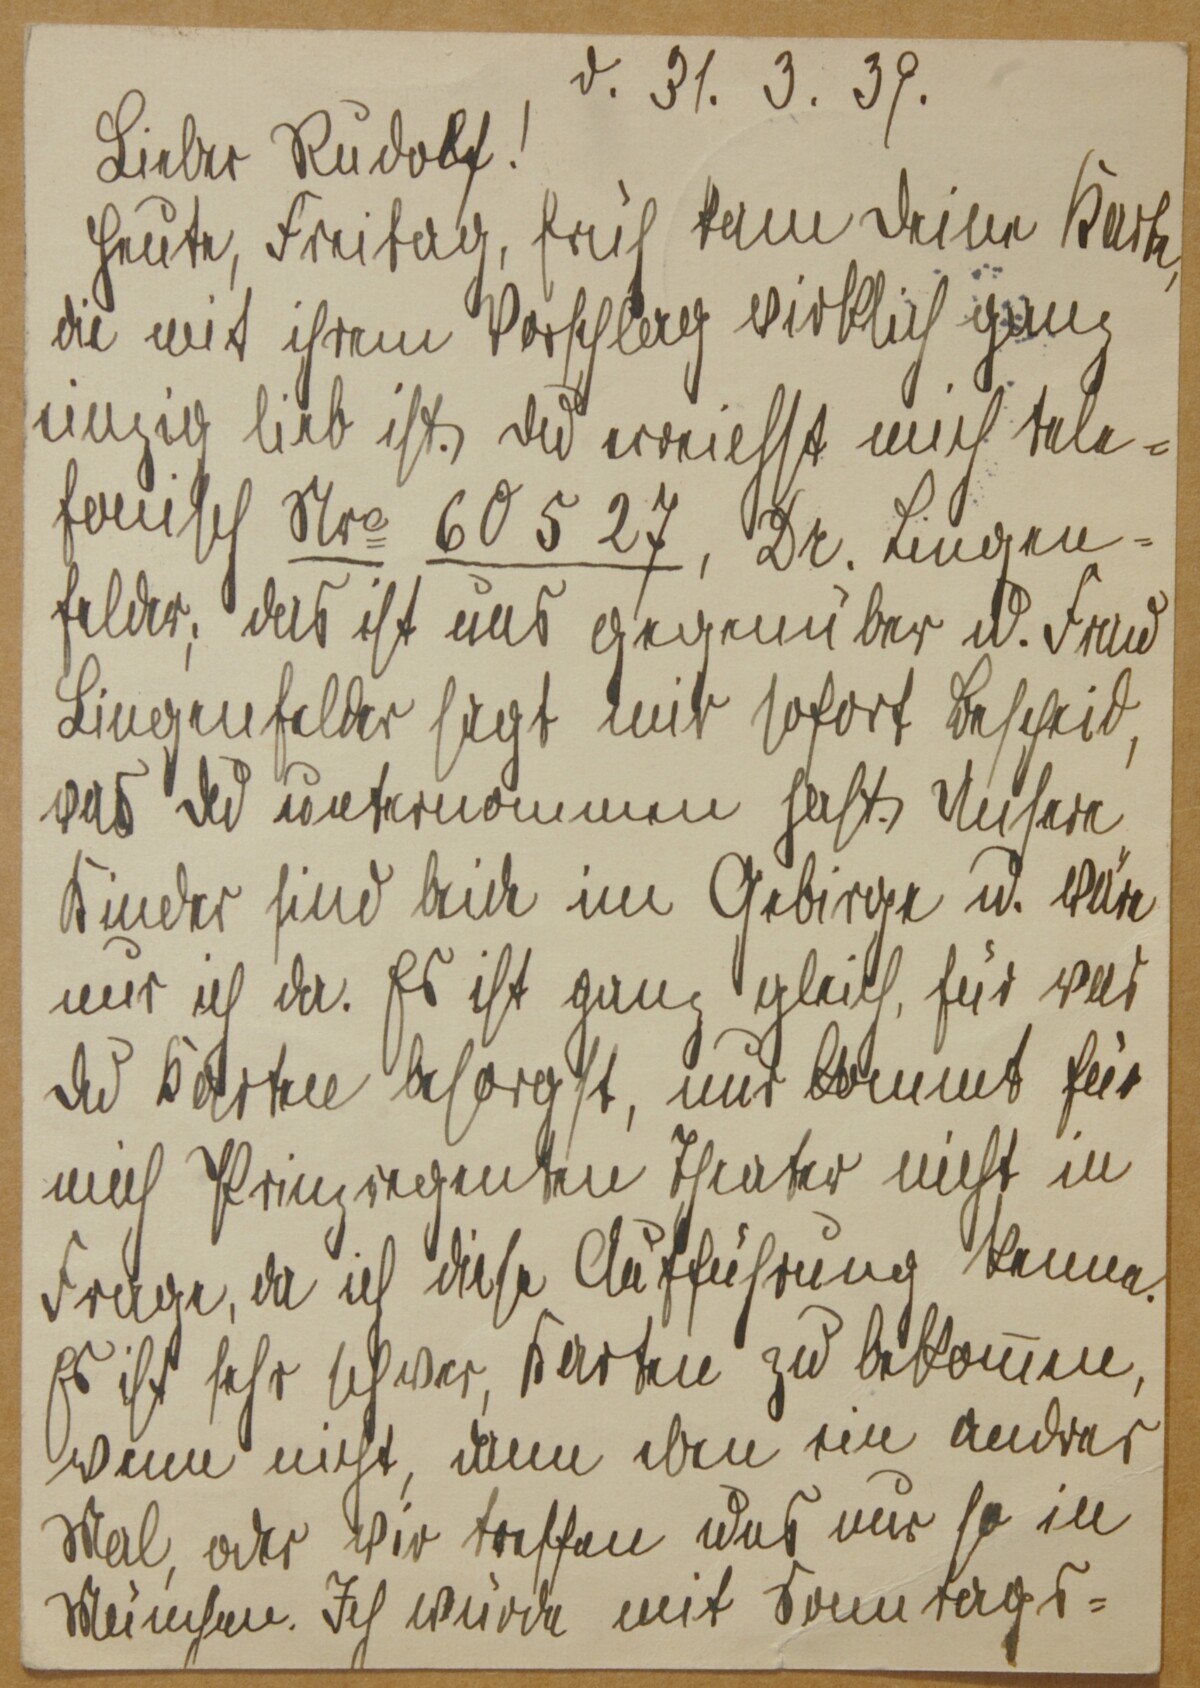 d. 31. 3. 39.
Lieber Rudolf!
Heute, Freitag, früh kam Deine Karte,
die mit ihrem Vorschlag wirklich ganz
einzig lieb ist. Du erreichst mich tele=
fonisch Nro 60527, Dr. Lingen=
felder, das ist uns gegenüber u. Frau
Lingenfelder sagt mir sofort Bescheid,
was Du unternommen hast. Unsere
Kinder sind beide im Gebirge u. wäre
nur ich da. Es ist ganz gleich, für was
Du Karten besorgst, nur kommt für
mich Prinzregenten Theater nicht in
Frage, da ich diese Aufführung kenne.
Es ist sehr schwer, Karten zu bekom̅en,
wenn nicht, dann eben ein andres
Mal, oder wir treffen uns nur so in
München. Ich würde mit Sonntags=